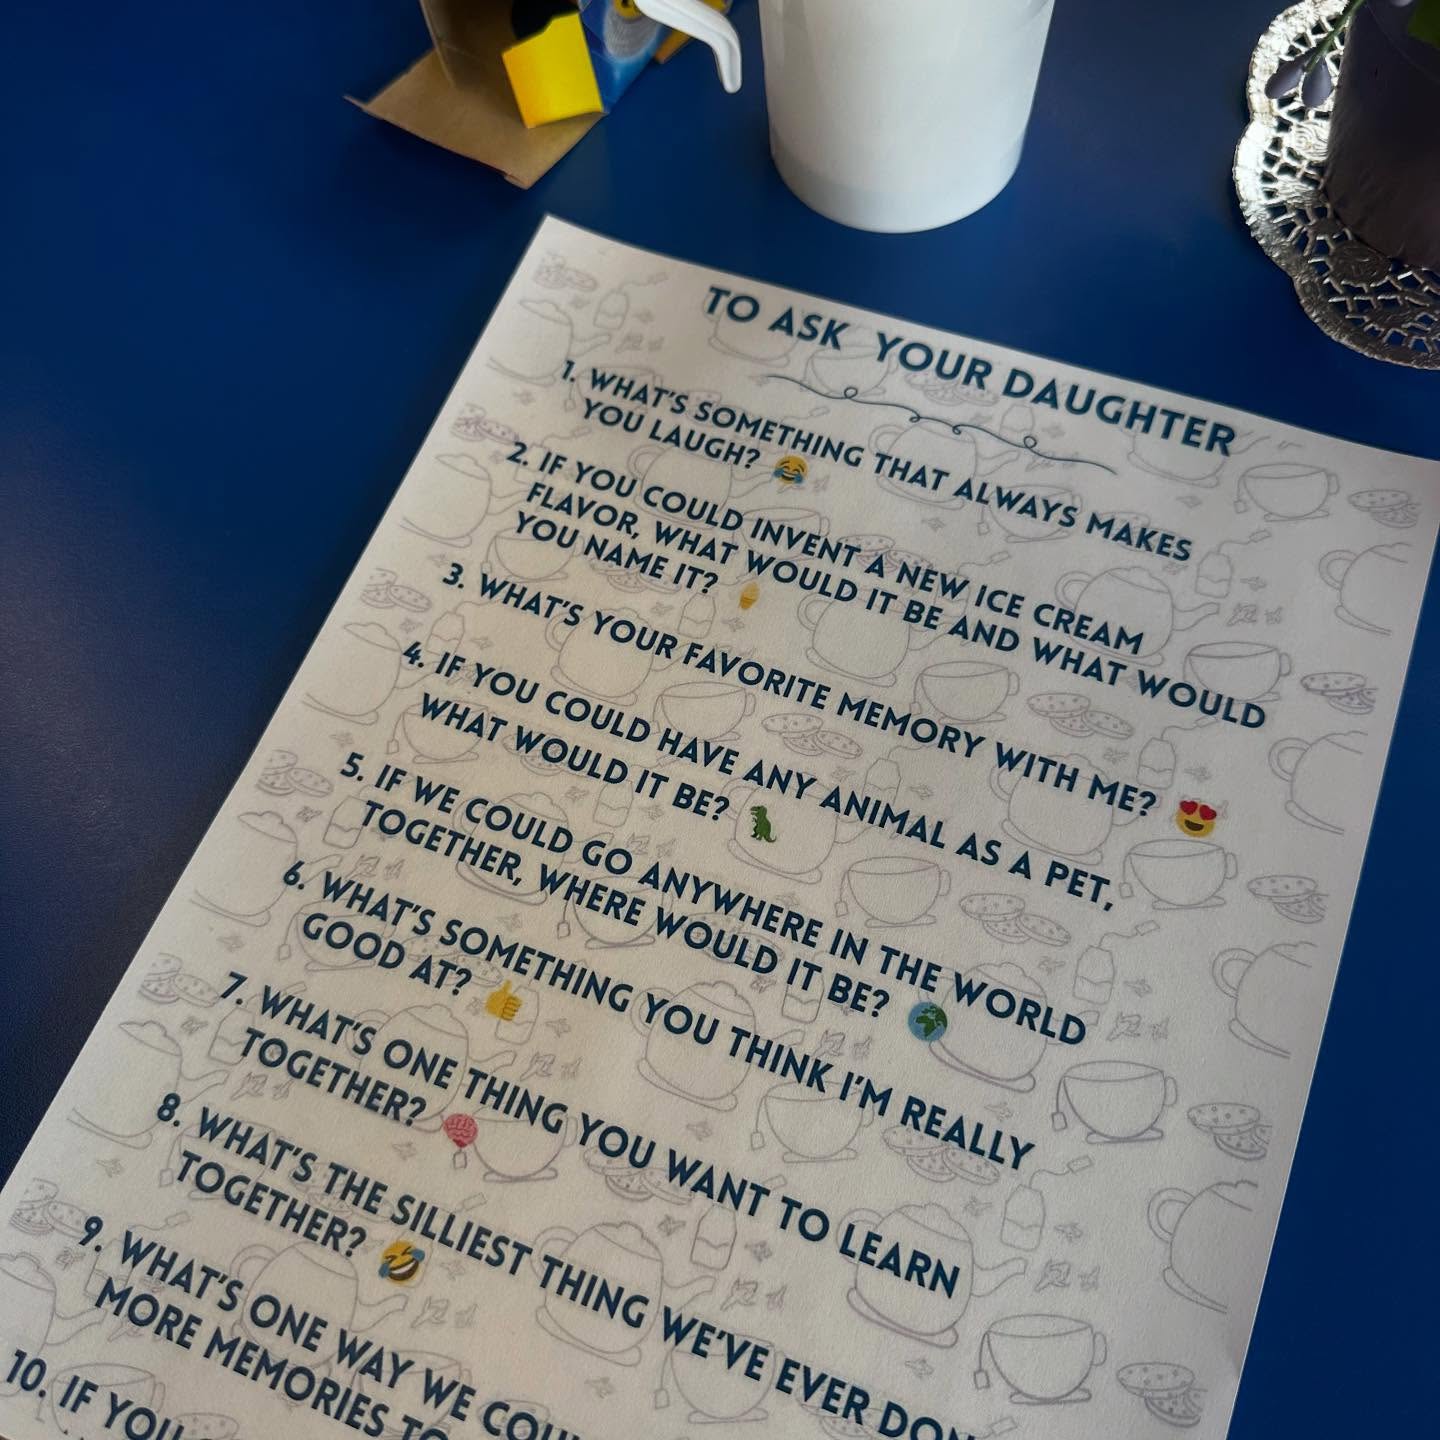 TO ASK YOUR DAUGHTER
1. WHAT'S SOMETHING THAT ALWAYS MAKES
YOU LAUGH? 😂
2. IF YOU COULD INVENT A NEW ICE CREAM
FLAVOR, WHAT WOULD IT BE AND WHAT WOULD
YOU NAME IT? 🍦
3. WHAT'S YOUR FAVORITE MEMORY WITH ME? 😍
4. IF YOU COULD HAVE ANY ANIMAL AS A PET,
WHAT WOULD IT BE? 🦖
5. IF WE COULD GO ANYWHERE IN THE WORLD
TOGETHER, WHERE WOULD IT BE? 🌍
6. WHAT'S SOMETHING YOU THINK I'M REALLY
GOOD AT? 👍
7. WHAT'S ONE THING YOU WANT TO LEARN
TOGETHER? 🧠
8. WHAT'S THE SILLIEST THING WE'VE EVER DON
TOGETHER? 🤣
9. WHAT'S ONE WAY WE COU
MORE MEMORIES TO
10. IF YOU